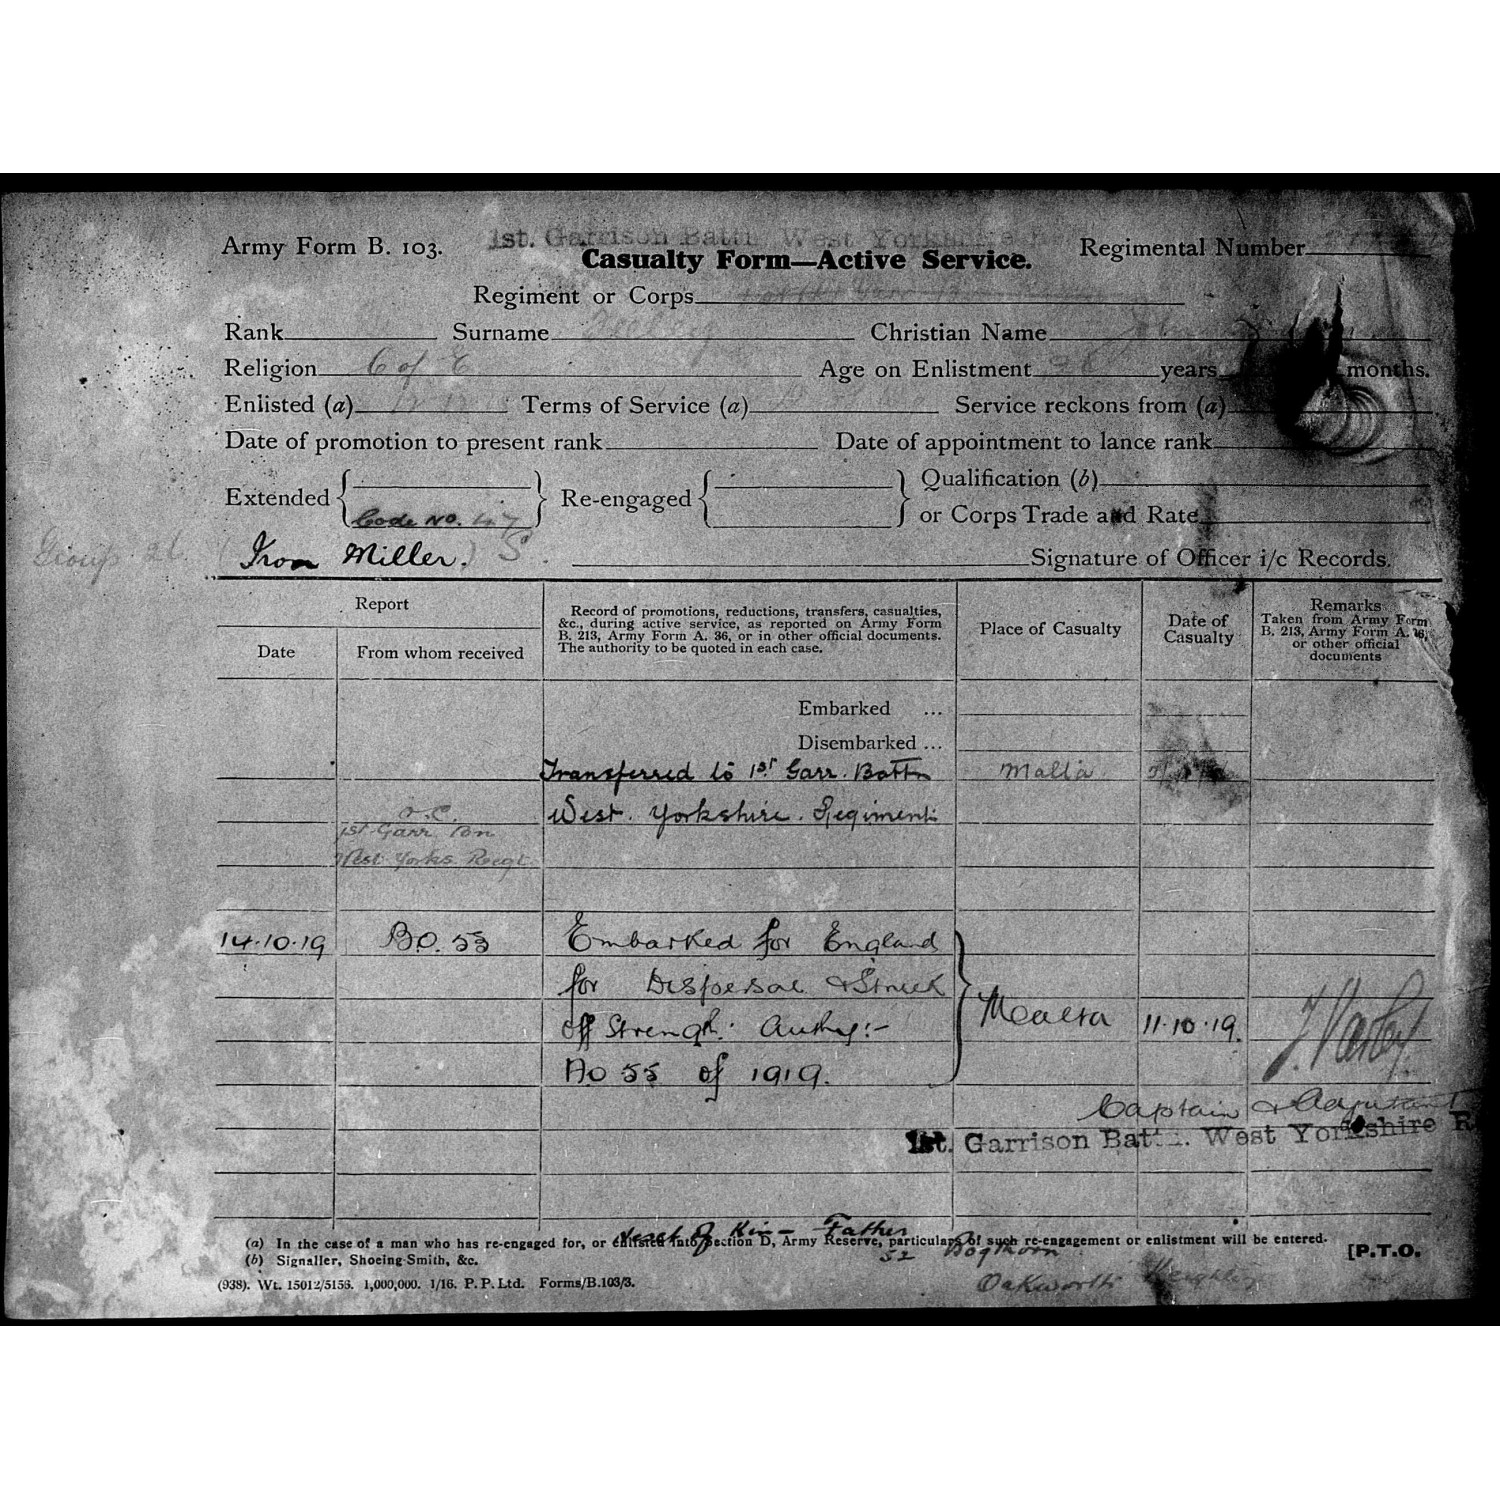 1st. Garrison Battn West Yorkshire
Army Form B. 103. Casualty Form—Active Service. Regimental Number
Regiment or Corps
Rank Surname Christian Name
Religion C of E Age on Enlistment years months.
Enlisted (a) Terms of Service (a) Service reckons from (a)
Date of promotion to present rank Date of appointment to lance rank
Extended Re-engaged Qualification (b)
Code No. 47 or Corps Trade and Rate
Group (Iron Miller.) S Signature of Officer i/c Records.
Report
Date From whom received
Record of promotions, reductions, transfers, casualties,
&c., during active service, as reported on Army Form
B. 213, Army Form A. 36, or in other official documents.
The authority to be quoted in each case.
Place of Casualty
Date of
Casualty
Remarks
Taken from Army Form
B. 213, Army Form A. 36,
or other official
documents
Embarked ...
Disembarked ...
Transferred to 1st Garr. Battn Malta
O.C. West. Yorkshire. Regiment
1st Garr Bn
West Yorks Regt
14.10.19 BO. 53 Embarked for England
for Dispersal & Struck
off Strength. Authy:- Malta 11.10.19.
AO 55 of 1919.
Captain & Adjutant
1st. Garrison Battn. West Yorkshire R
Next of Kin — Father
(a) In the case of a man who has re-engaged for, or enlisted into Section D, Army Reserve, particulars of such re-engagement or enlistment will be entered.
52 Bogthorn
(b) Signaller, Shoeing-Smith, &c. [P.T.O.
Oakworth Keighley
(938). Wt. 15012/5156. 1,000,000. 1/16. P. P. Ltd. Forms/B.103/3.